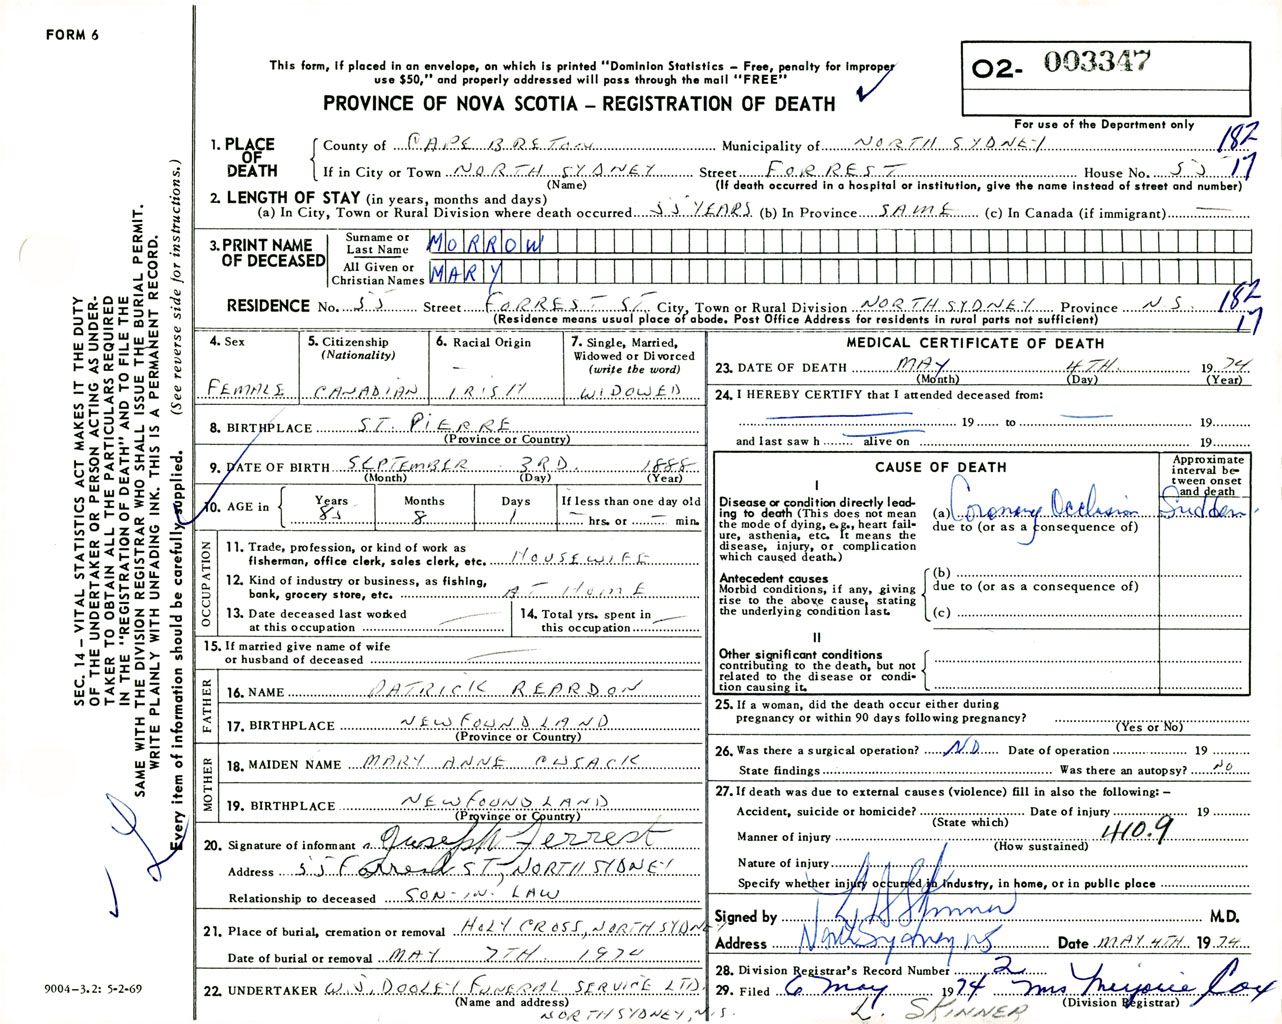 FORM 6
This form, if placed in an envelope, on which is printed "Dominion Statistics – Free, penalty for improper
use $50," and properly addressed will pass through the mail "FREE"
PROVINCE OF NOVA SCOTIA – REGISTRATION OF DEATH
02- 003347
For use of the Department only
1. PLACE OF DEATH
County of CAPE BRETON Municipality of NORTH SYDNEY 182
If in City or Town NORTH SYDNEY Street FORREST House No. 55 17
(Name) (If death occurred in a hospital or institution, give the name instead of street and number)
2. LENGTH OF STAY (in years, months and days)
(a) In City, Town or Rural Division where death occurred 55 YEARS (b) In Province SAME (c) In Canada (if immigrant) —
3. PRINT NAME OF DECEASED
Surname or Last Name MORROW
All Given or Christian Names MARY
RESIDENCE No. 55 Street FORREST ST. City, Town or Rural Division NORTH SYDNEY Province N.S. 182
(Residence means usual place of abode. Post Office Address for residents in rural parts not sufficient) 17
4. Sex
FEMALE
5. Citizenship
(Nationality)
CANADIAN
6. Racial Origin
IRISH
7. Single, Married,
Widowed or Divorced
(write the word)
WIDOWED
8. BIRTHPLACE ST. PIERRE
(Province or Country)
9. DATE OF BIRTH SEPTEMBER 3RD. 1888
(Month) (Day) (Year)
10. AGE in
Years Months Days If less than one day old
85 8 1 — hrs. or — min.
OCCUPATION
11. Trade, profession, or kind of work as
fisherman, office clerk, sales clerk, etc. HOUSEWIFE
12. Kind of industry or business, as fishing,
bank, grocery store, etc. AT HOME
13. Date deceased last worked
at this occupation
14. Total yrs. spent in
this occupation
15. If married give name of wife
or husband of deceased
FATHER
16. NAME PATRICK REARDON
17. BIRTHPLACE NEWFOUNDLAND
(Province or Country)
MOTHER
18. MAIDEN NAME MARY ANNE CUSACK
19. BIRTHPLACE NEWFOUNDLAND
(Province or Country)
20. Signature of informant Joseph Ferrest
Address 55 Forrest ST, NORTH SYDNEY
Relationship to deceased SON-IN-LAW
21. Place of burial, cremation or removal HOLY CROSS, NORTH SYDNEY
Date of burial or removal MAY 7TH. 1974
22. UNDERTAKER W.J. DOOLEY FUNERAL SERVICE LTD.
(Name and address)
NORTH SYDNEY, N.S.
MEDICAL CERTIFICATE OF DEATH
23. DATE OF DEATH MAY 4TH. 1974
(Month) (Day) (Year)
24. I HEREBY CERTIFY that I attended deceased from:
19 to 19
and last saw h alive on 19
CAUSE OF DEATH
Approximate interval between onset and death
I
Disease or condition directly lead-
ing to death (This does not mean
the mode of dying, e.g., heart fail-
ure, asthenia, etc. It means the
disease, injury, or complication
which caused death.)
(a) Coronary Occlusion Sudden
due to (or as a consequence of)
Antecedent causes
Morbid conditions, if any, giving
rise to the above cause, stating
the underlying condition last.
(b)
due to (or as a consequence of)
(c)
II
Other significant conditions
contributing to the death, but not
related to the disease or condi-
tion causing it.
25. If a woman, did the death occur either during
pregnancy or within 90 days following pregnancy?
(Yes or No)
26. Was there a surgical operation? NO Date of operation 19
State findings Was there an autopsy? NO
27. If death was due to external causes (violence) fill in also the following: –
Accident, suicide or homicide? Date of injury 19
(State which)
Manner of injury 410.9
(How sustained)
Nature of injury
Specify whether injury occurred in Industry, in home, or in public place
Signed by L S Skinner M.D.
Address North Sydney NS Date MAY 4TH 1974
28. Division Registrar's Record Number 2
29. Filed 6 May 1974 Mrs Marjorie Cox
(Division Registrar)
L. SKINNER
SEC. 14 – VITAL STATISTICS ACT MAKES IT THE DUTY
OF THE UNDERTAKER OR PERSON ACTING AS UNDER-
TAKER TO OBTAIN ALL THE PARTICULARS REQUIRED
IN THE "REGISTRATION OF DEATH" AND TO FILE THE
SAME WITH THE DIVISION REGISTRAR WHO SHALL ISSUE THE BURIAL PERMIT.
WRITE PLAINLY WITH UNFADING INK. THIS IS A PERMANENT RECORD.
Every item of information should be carefully supplied. (See reverse side for instructions.)
9004-3.2: 5-2-69